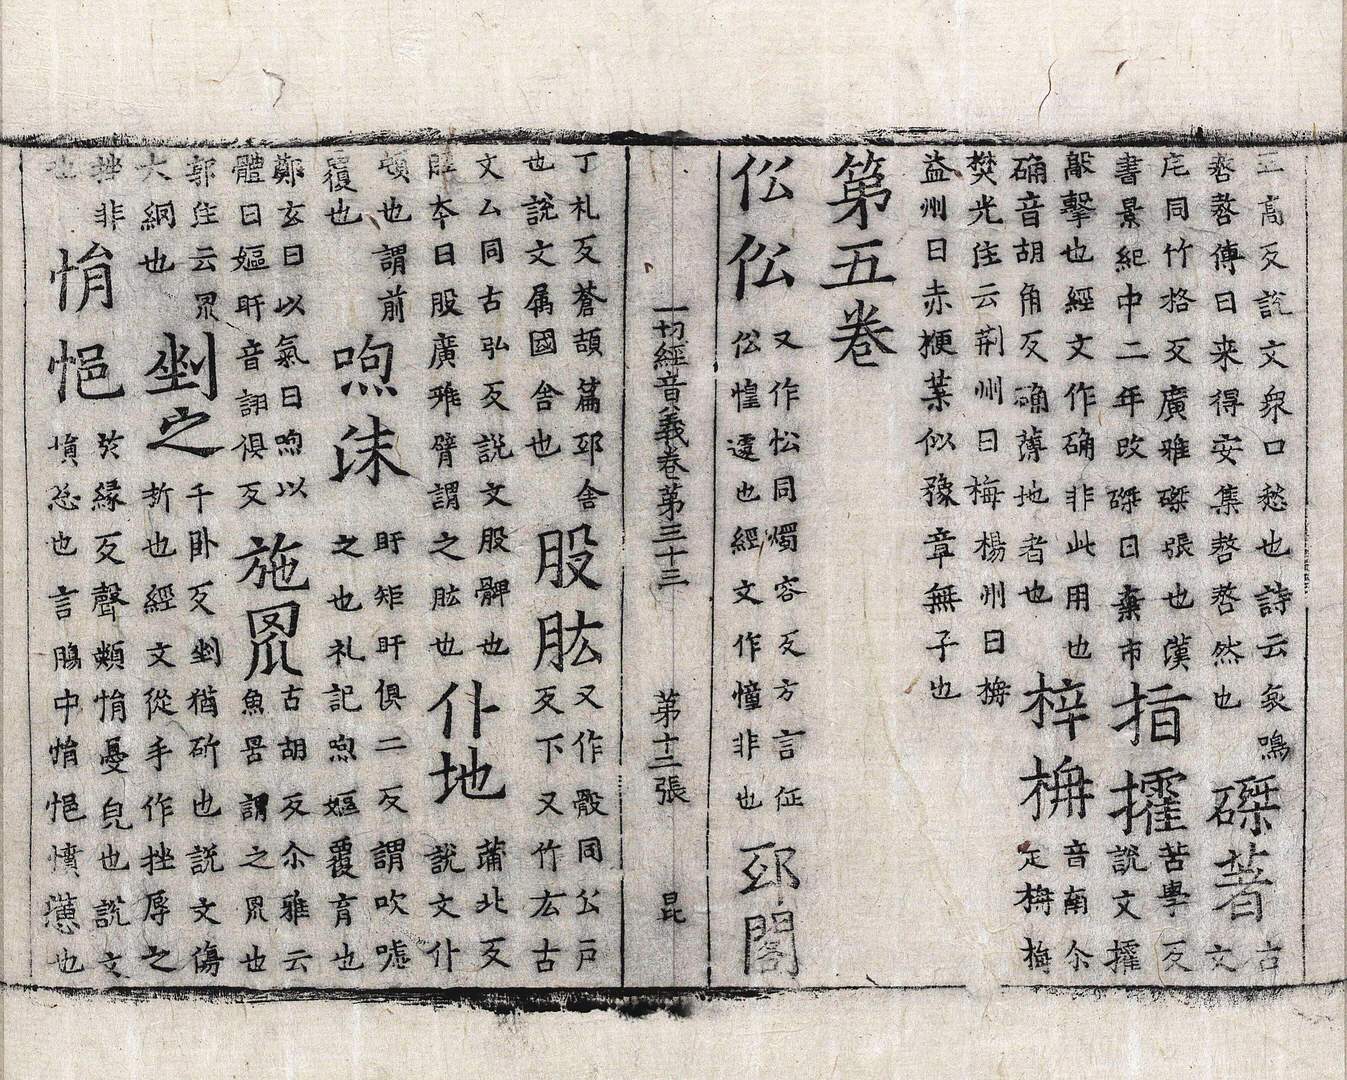 五高反說文衆口愁也詩云哀鳴
嗸嗸傳曰来得安集嗸嗸然也
磔著
古
文
厇同竹格反廣雅磔張也漢
書景紀中二年改磔曰棄市
揩擢
苦學反
說文擢
敲擊也經文作确非此用也
确音胡角反确薄地者也
梓栴
音南尒
疋栴梅
樊光注云荆州曰梅楊州曰栴
益州曰赤楩葉似豫章無子也
第五卷
伀伀
又作忪同燭容反方言伀
伀惶遽也經文作憧非也
邸閣
一切經音義卷第三十三 第十二張 昆
丁礼反蒼頡篇邸舍
也說文属國舍也
股肱
又作骰同公戶
反下又竹厷古
文厶同古弘反說文股髀也
本曰股廣雅臂謂之肱也
仆地
蒲北反
說文仆
頓也謂前
覆也
喣沫
盱矩盱俱二反謂吹噓
之也礼記喣嫗覆育也
鄭玄曰以氣曰喣以
體曰嫗盱音詡俱反
施罛
古胡反尒雅云
魚罟謂之罛也
郭注云罛
大網也
剉之
千卧反剉猶斫也說文傷
折也經文從手作挫辱之
挫非
也
悁悒
於緣反聲類悁憂皃也說文
悁忿也言腸中悁悒憤懣也